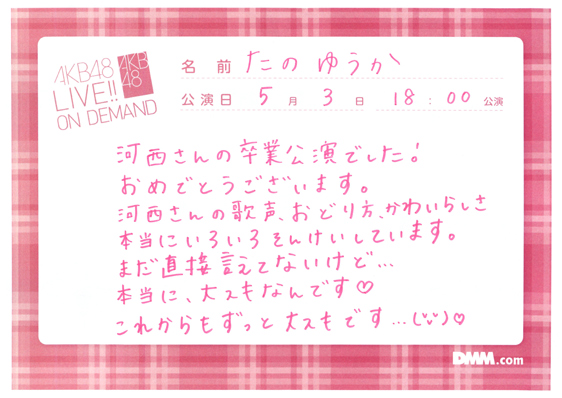 AKB48
LIVE!!
ON DEMAND
AKB
48
名前 たの ゆうか
公演日 5月 3日 18:00 公演
河西さんの卒業公演でした！
おめでとうございます。
河西さんの歌声、おどり方、かわいらしさ
本当にいろいろそんけいしています。
まだ直接言えてないけど…
本当に、大スキなんです♡
これからもずっと大スキです…(¨)♡
DMM.com